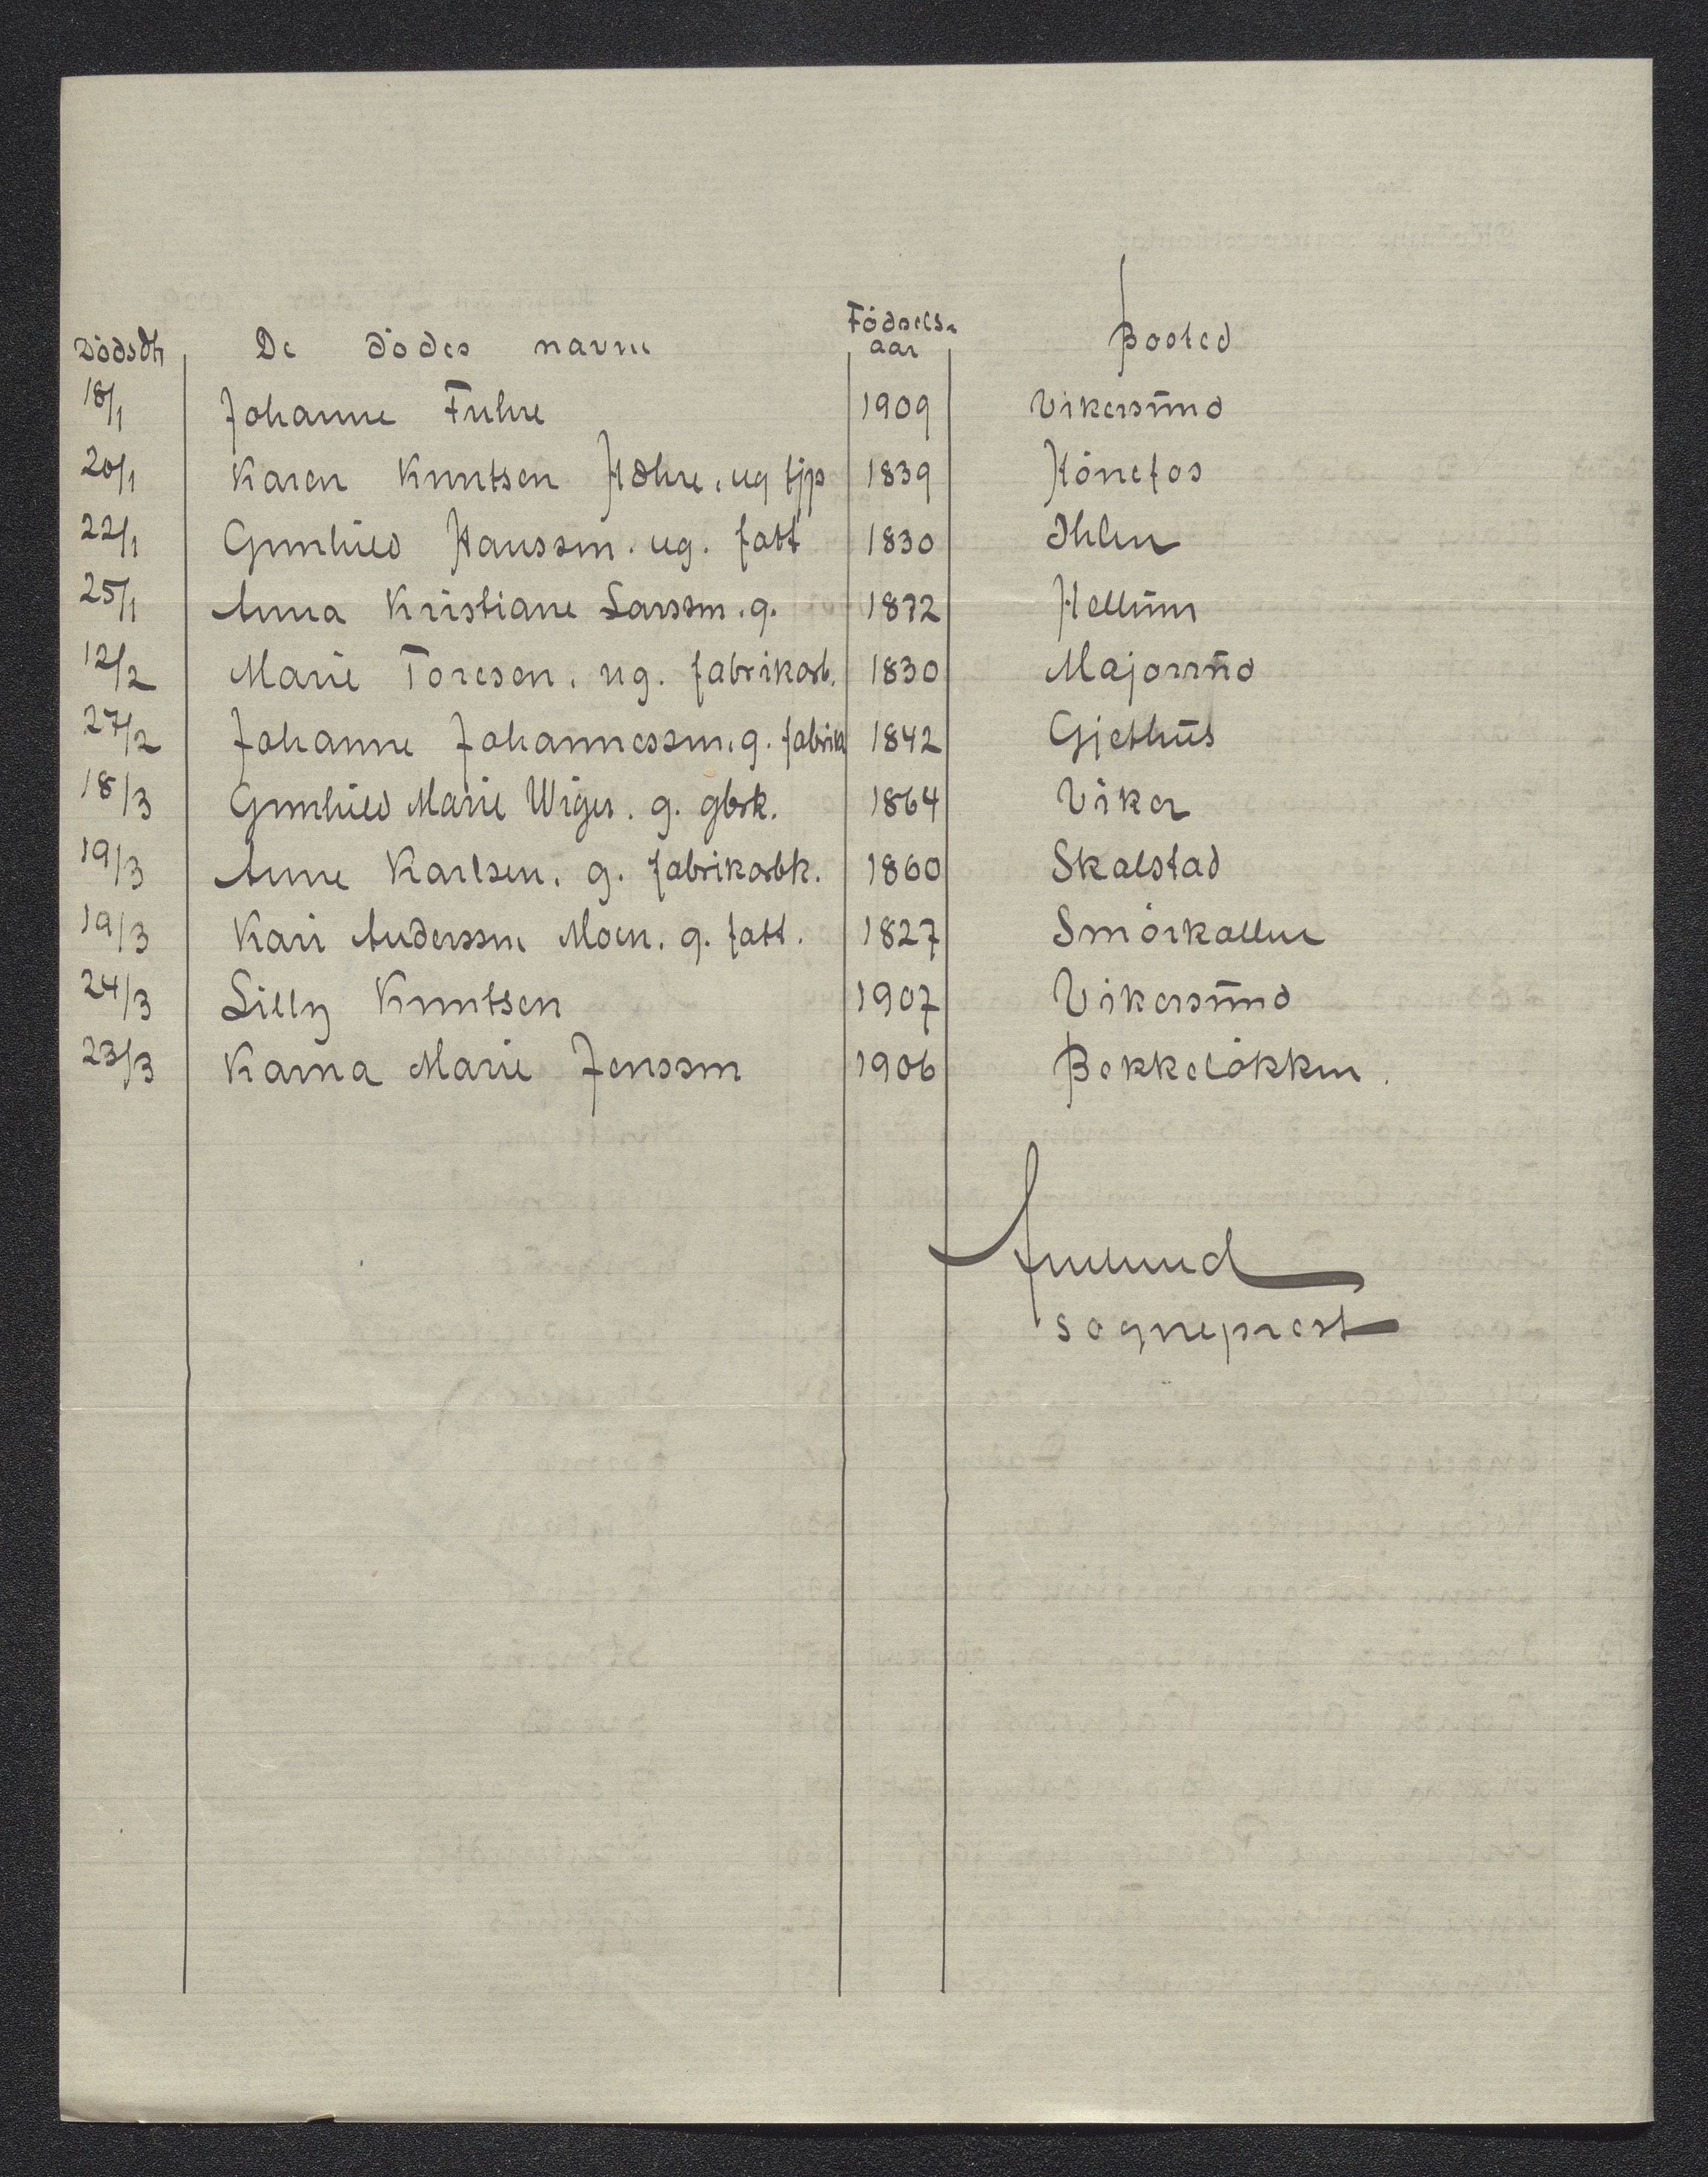 Dödsdt De dödes navne Födsels-aar Bosted
18/1 Johanne Fuhre 1909 Vikersund
20/1 Karen Knutsen Hohre. ug tjp 1839 Hönefos
22/1 Gunhild Hanssen. ug. fatt 1830 Ihlen
25/1 Anna Kristiane Larssen. g. 1872 Hellum
12/2 Marie Toresen. ug. fabrikarb. 1830 Majorud
27/2 Johanne Johannessen. g. fabrika 1842 Gjethus
18/3 Gunhild Marie Wiger. g. gbrk. 1864 Viker
19/3 Anne Karlsen. g. fabrikarbk. 1860 Skalstad
19/3 Kari Anderssen Moen. g. fatt. 1827 Smörkollen
24/3 Lilly Knutsen 1907 Vikersund
23/3 Karna Marie Jenssen 1906 Bekkelökken.
sogneprest